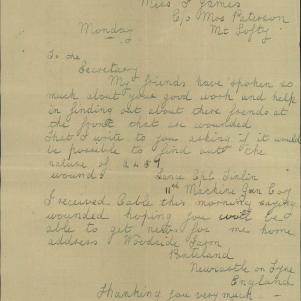 Miss J James
C/o Mrs Paterson
Mt Lofty
Monday
To the
Secretary
My friends have spoken so
much about your good work and help
in finding out about there frends at
the front that are wounded
that I write to you asking if it would
be possible to find out the
nature of 2457
wound?
Lance Cpl Tinlin
11th Machine Gun Coy
I received Cable this morning saying
wounded hoping you will be
able to get news for me home
address Woodside Farm
Newcastle on Tyne
England
Thanking you very much